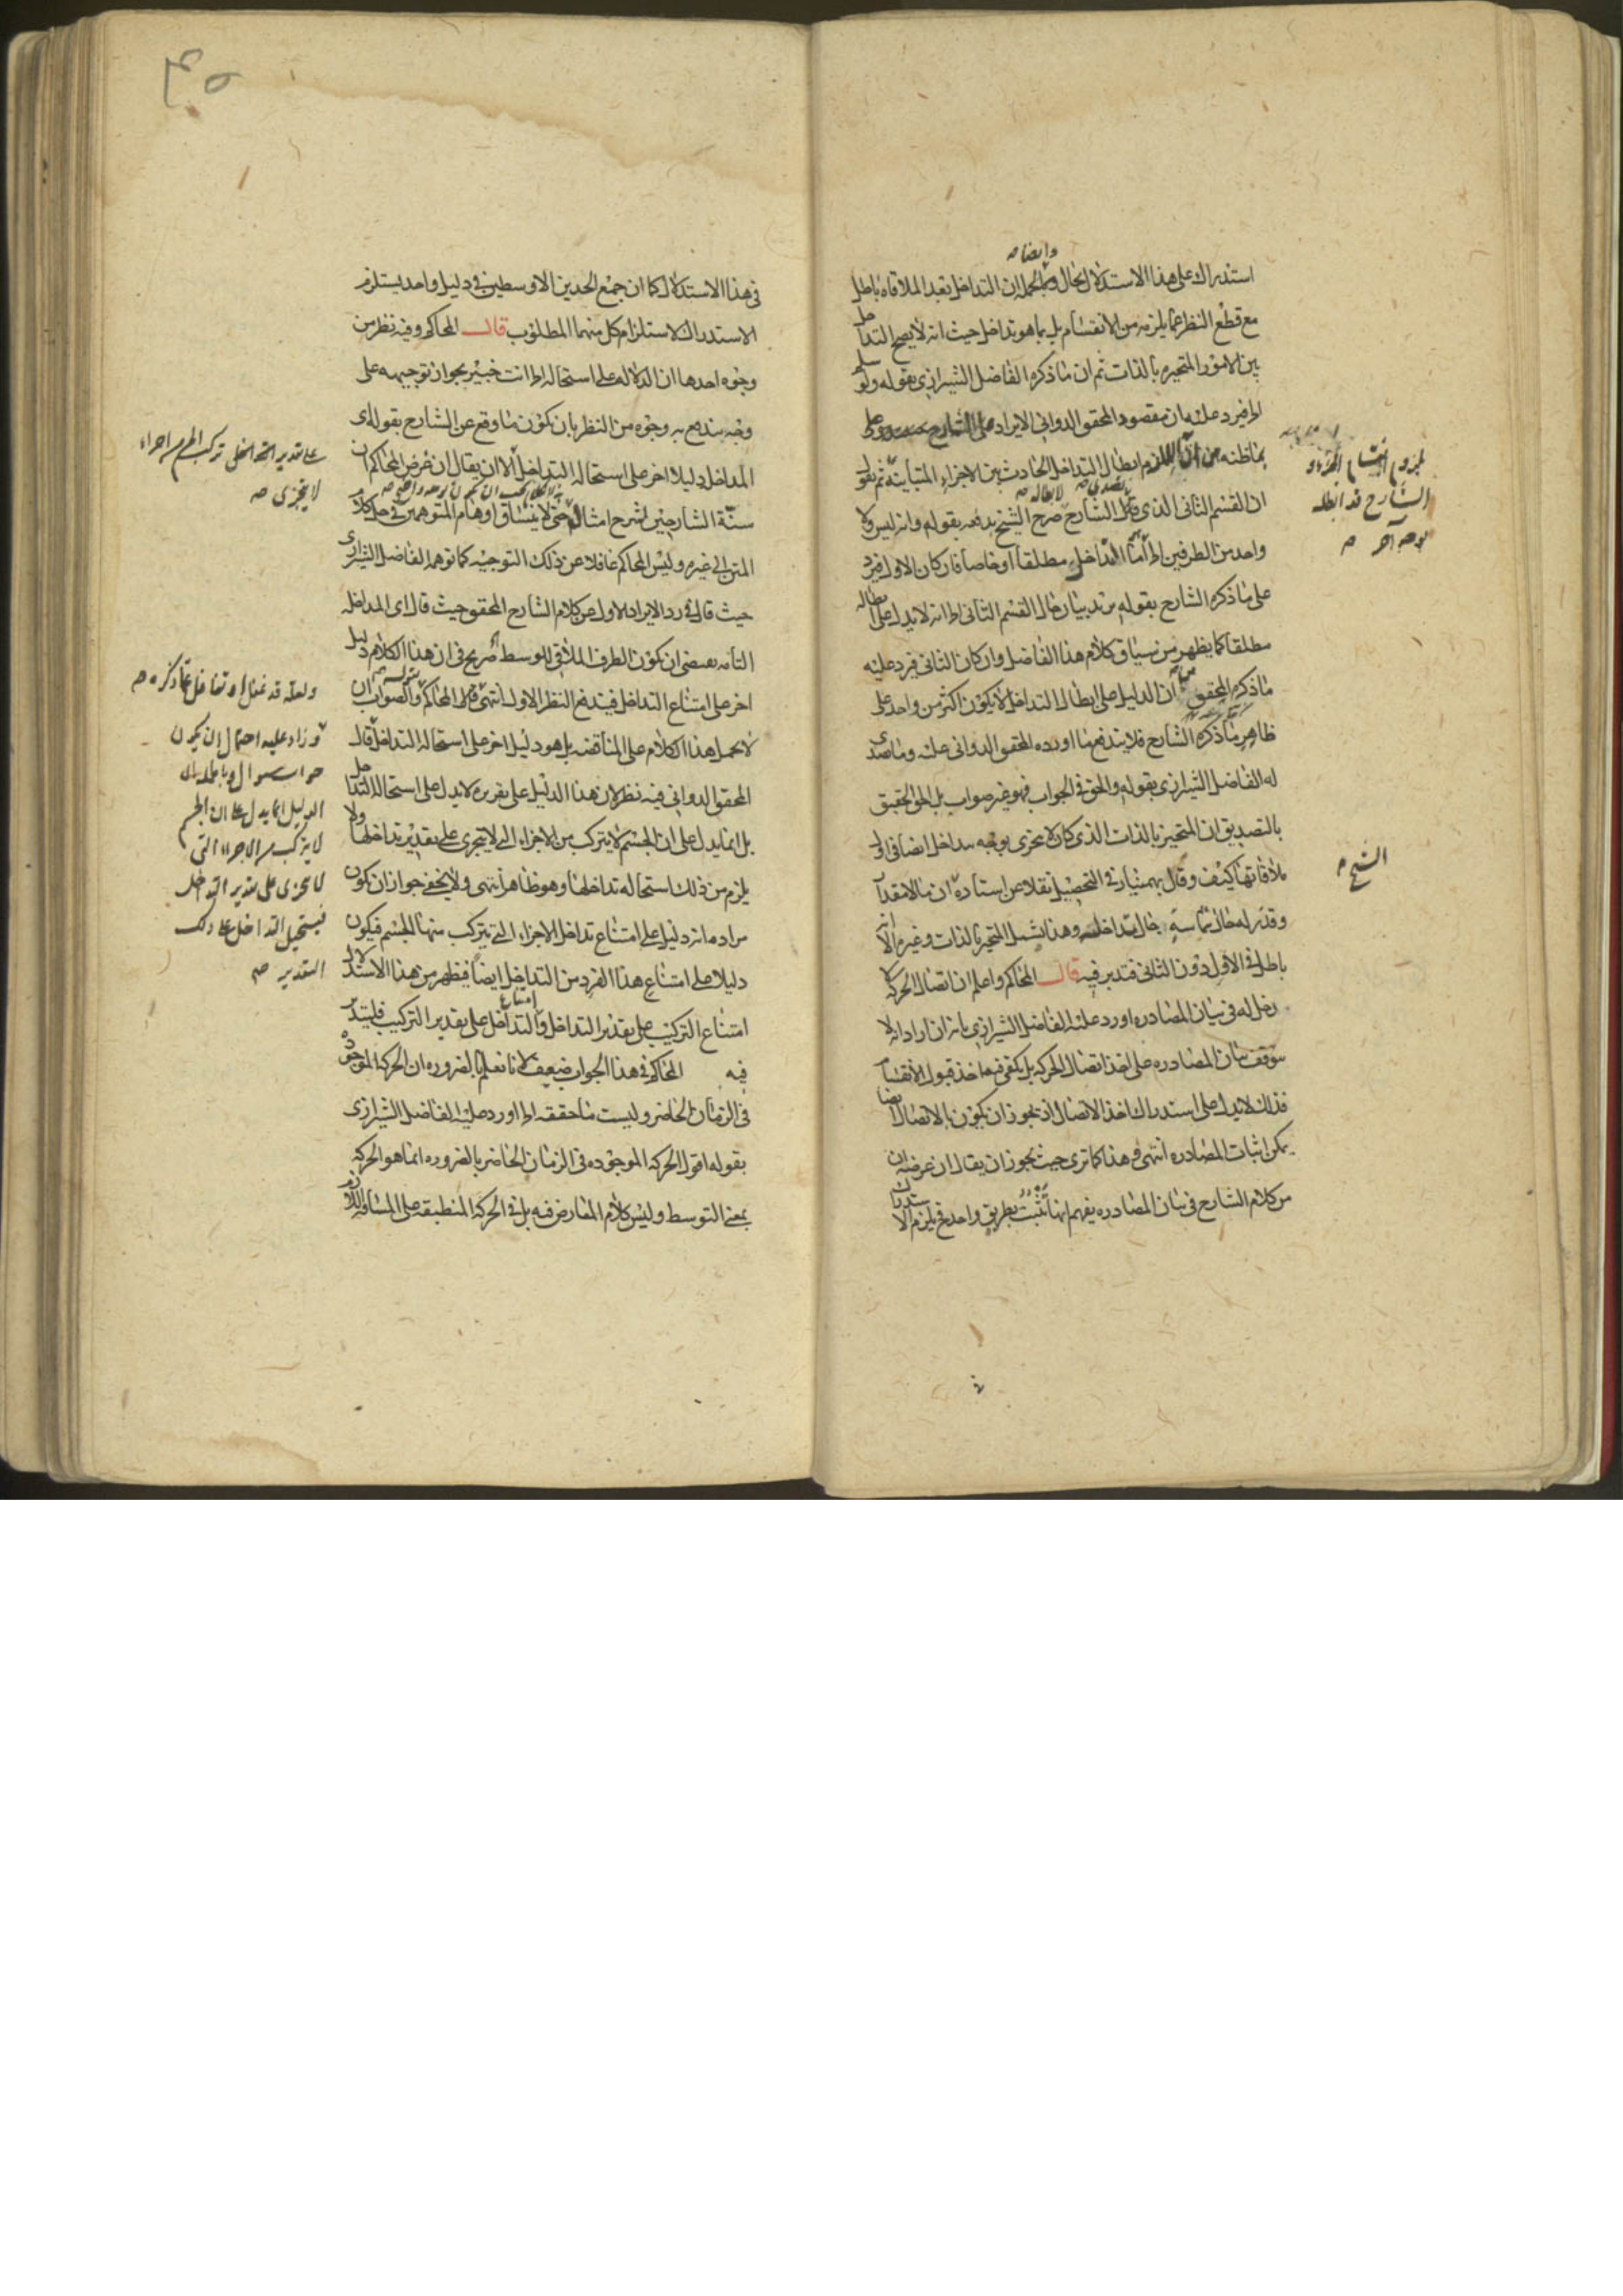 وايضا صح
استدراك على هذا الاستدلال بحال وبالجملة ان التداخل بعد الملاقاة باطل
مع قطع النظر عما يلزمه من الانقسام بل بما هو تداخل حيث انه لا يصح التداخل
بين الامور المتحيزة بالذات ثم ان ما ذكره الفاضل الشيرازي بقوله ولو سلم
الخ فيرد عليه ان مقصود المحقق الدواني الايراد على الشارح
بما ظنه من ان اللازم ابطال التداخل الحادث بين الاجزاء المتباينة ثم نقول
ان القسم الثاني الذي قال الشارح صرح الشيخ بدفعه بقوله وانه ليس ولا
واحد من الطرفين الخ اما التداخل مطلقا او خاصا فان كان الاول فيرد
على ما ذكره الشارح بقوله يريد بيان حال القسم الثاني الخ انه لا يدل على ابطاله
مطلقا كما يظهر من سياق كلام هذا الفاضل وان كان الثاني فيرد عليه
ما ذكره المحقق من ان الدليل على ابطال التداخل لا يكون اكثر من واحد على
ظاهر ما ذكره الشارح فلا يندفع ما اورده المحقق الدواني عليه وما تصدى
له الفاضل الشيرازي بقوله والحق في الجواب فهو غير صواب بل الحق الحقيق
بالتصديق ان المتحيز بالذات الذي كان لا يتجزى بوجه يتداخل ايضا في اول
ملاقاتها كيف وقال بهمنيار في التحصيل نقلا عن استاده ان ما لا مقدار
وقدر له حال تماسه حال تداخله وهذا يشمل المتحيز بالذات وغيره الا انه
باطل في الاول دون الثاني فتدبر فيه قال المحاكم واعلم ان اتصال الحركة لا
دخل له في بيان المصادره اورد عليه الفاضل الشيرازي بانه ان اراد انه لا
يتوقف بيان المصادره على اخذ اتصال الحركة بل يكفي فيها اخذ قبول الانقسام
فذلك لا يدل على استدراك اخذ الاتصال اذ يجوز ان يكون بالاتصال ايضا
يمكن اثبات المصادره انتهى وهذا كما ترى حيث يجوز ان يقال ان غرضه ان
من كلام الشارح في بيان المصادره يفهم انها تثبت بطريق واحد فيلزم الاستدراك
الشارح قد ابطله
بوجه آخر صح
الشيخ صح
في هذا الاستدلال كما ان جمع الحدين الاوسطين في دليل واحد يستلزم
الاستدراك لاستلزام كل منهما المطلوب قال المحاكم وفيه نظر من
وجوه احدها ان الدلالة على استحالة الخ انت خبير بجواز توجيهه على
وجه يندفع به وجوه من النظر بان يكون ما وقع عن الشارح بقوله اى
المداخل دليلا اخر على استحالة التداخل الا ان يقال ان غرض المحاكم ان
سنة الشارحين لشرح امثال حتى لا ينساق اوهام المتوهمين في حل كلام
المتن الى غيره وليس المحاكم غافلا عن ذلك التوجيه كما توهمه الفاضل الشيرازى
حيث قال في رد الايراد الاول عن كلام الشارح المحقق حيث قال اى المداخلة
التامة يقتضى ان يكون الطرف الملاقى للوسط صريح في ان هذا الكلام دليل
اخر على امتناع التداخل فيندفع النظر الاول انتهى قال المحاكم والصواب ان
لا يحمل هذا الكلام على المناقضة بل هو دليل اخر على استحالة التداخل قال
المحقق الدواني فيه نظر لان هذا الدليل على تقريره لا يدل على استحالة التداخل
بل انما يدل على ان الجسم لا يتركب من الاجزاء التي لا يتجزى على تقدير تداخلها ولا
يلزم من ذلك استحالة تداخلها وهو ظاهر انتهى ولا يخفى جواز ان يكون
مراده انه دليل على امتناع تداخل الاجزاء التي يتركب منها الجسم فيكون
دليلا على امتناع هذا الفرد من التداخل ايضا فظهر من هذا الاستدلال
امتناع التركيب على تقدير التداخل وامتناع التداخل على تقدير التركيب فليتدبر
فيه المحاكم في هذا الجواب ضعيف لانا نعلم بالضرورة ان الحركة الموجودة
في الزمان الحاضر وليست ما حققه الخ اورد عليه الفاضل الشيرازى
بقوله اقول الحركة الموجودة في الزمان الحاضر بالضرورة انما هو الحركة
بمعنى التوسط وليس كلام المعارض فيه بل في الحركة المنطبقة على المسافة اللازم
على تقدير التداخل تركب الجرم من اجزاء
لا يتجزى صح
ولعله قد غفل او تغافل عما ذكره صح
وزاد عليه احتمال ان يكون
جواب سوال
الدليل انما يدل على ان الجسم
لا يتركب من الاجزاء التى
لا يتجزى على تقدير التداخل
فيستحيل التداخل على ذلك
التقدير صح